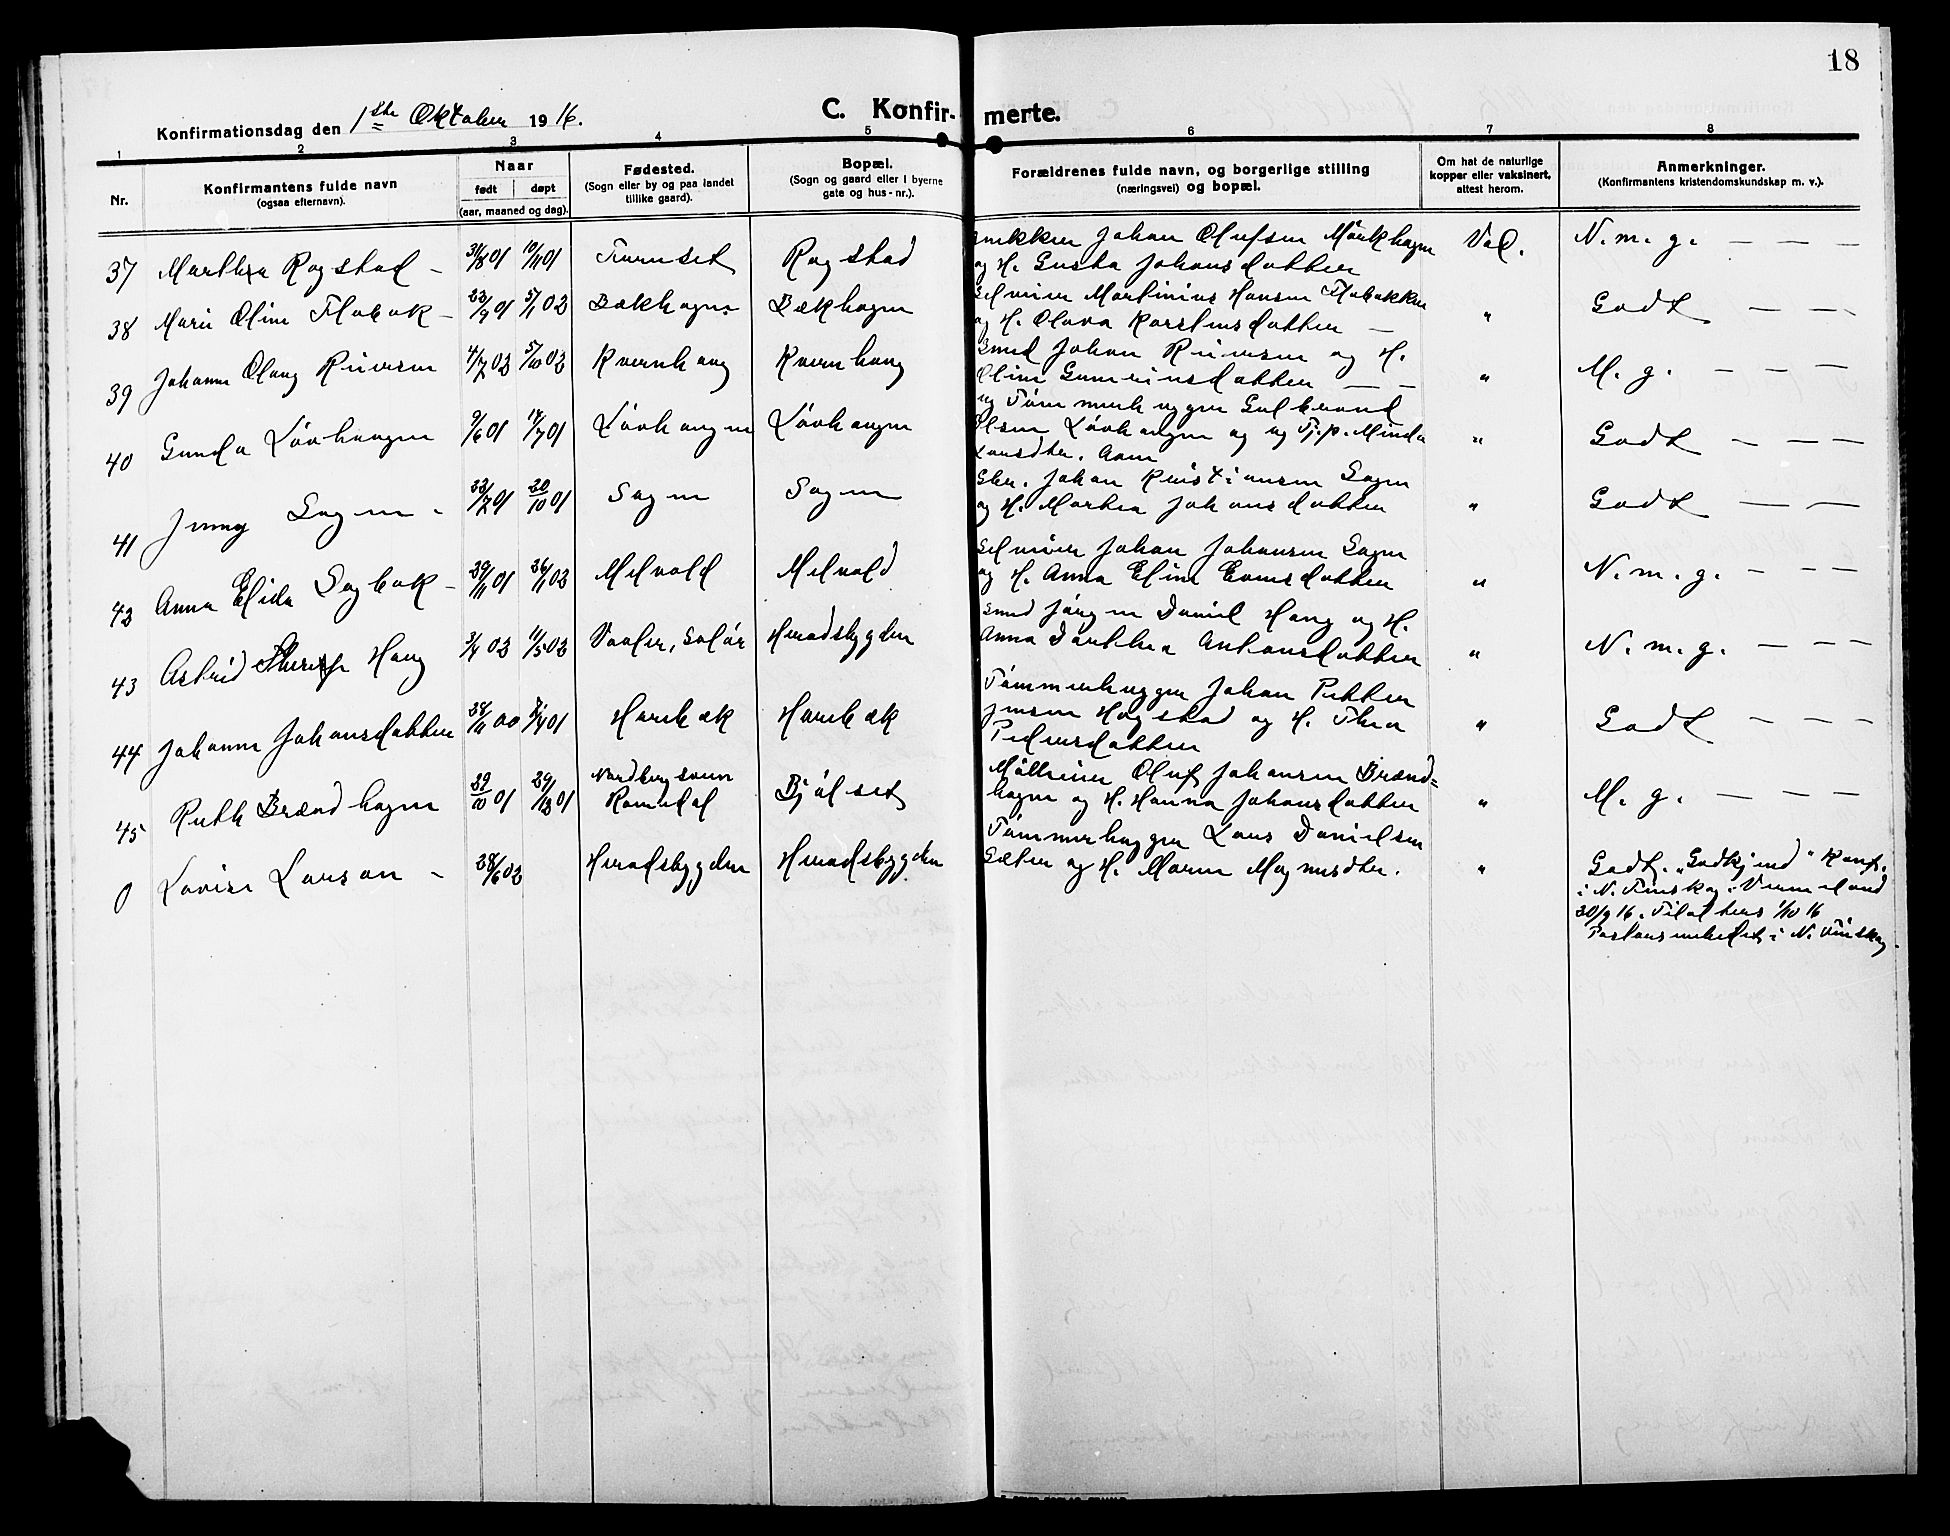 18
Konfirmationsdag den 1ste Oktober 1916.
C. Konfirmerte.
1 2 3 4 5 6 7 8
Nr.
Konfirmantens fulde navn
(ogsaa efternavn).
Naar
født døpt
(aar, maaned og dag).
Fødested.
(Sogn eller by og paa landet
tillike gaard).
Bopæl.
(Sogn og gaard eller i byerne
gate og hus-nr.).
Forældrenes fulde navn, og borgerlige stilling
(næringsvei) og bopæl.
Om hat de naturlige
kopper eller vaksinert,
attest herom.
Anmerkninger.
(Konfirmantens kristendomskundskap m. v.).
37 Marthea Rogstad - 31/8 01 10/11 01 Furuset Rogstad
Snekker Johan Olufsen Mörkhagen
og H. Gusta Johansdatter
Vad. N. m. g. — — —
38 Marie Oline Flobak - 23/9 01 5/1 02 Bækhagen Bækhagen
Selveier Martinius Hansen Flobakken
og H. Olava Karstensdatter —
" Godt — — —
39 Johanne Olaug Reiersen 4/7 02 5/10 02 Kvernhaug Kvernhaug
Smed Johan Reiersen og H.
Oline Guneriusdatter — —
" M. g. — — —
40 Gunda Lövhaugen 9/6 01 14/7 01 Lövhaugen Lövhaugen
ug Tömmerhugger Gulbrand
Olsen Lövhaugen og ug Tj.p. Minda
Larsdtr. Aam
" Godt — — —
41 Jenny Sagen - 23/7 01 20/10 01 Sagen Sagen
Gbr. Johan Kristiansen Sagen
og H. Marthea Johansdatter
" Godt — —
42 Anna Elida Sagbak - 29/11 01 26/1 02 Melvold Melvold
Selveier Johan Johansen Sagen
og H. Anna Eline Evensdatter
" N. m. g. — — —
43 Astrid Therese Haug 3/4 02 11/5 02 Vaaler, Solör Heradsbygden
Smed Jörgen Daniel Haug og H.
Anna Dorthea Antonsdatter
" N. m. g. — — —
44 Johanne Johansdatter 28/11 00 /4 01 Harebæk Harebæk
Tömmerhugger Johan Petter
Jensen Hogstad og H. Thea
Pedersdatter
" Godt — — —
45 Ruth Brændhagen 29/10 01 29/12 01 Nordbergsveen
Romedal Bjölset
Mölleeier Oluf Johansen Brænd=
hagen og H. Hanna Johansdatter
" M. g. — — —
0 Lovise Larson - 28/6 02 Heradsbygden Heradsbygden
Tömmerhugger Lars Danielsen
Sæter og H. Maren Magnusdtr.
" Godt. "Godkjend" Konf.
i N. Finskog i Vermeland
30/9 16. Til alters 1/10 16
Pastorsembedet i N. Finskog.